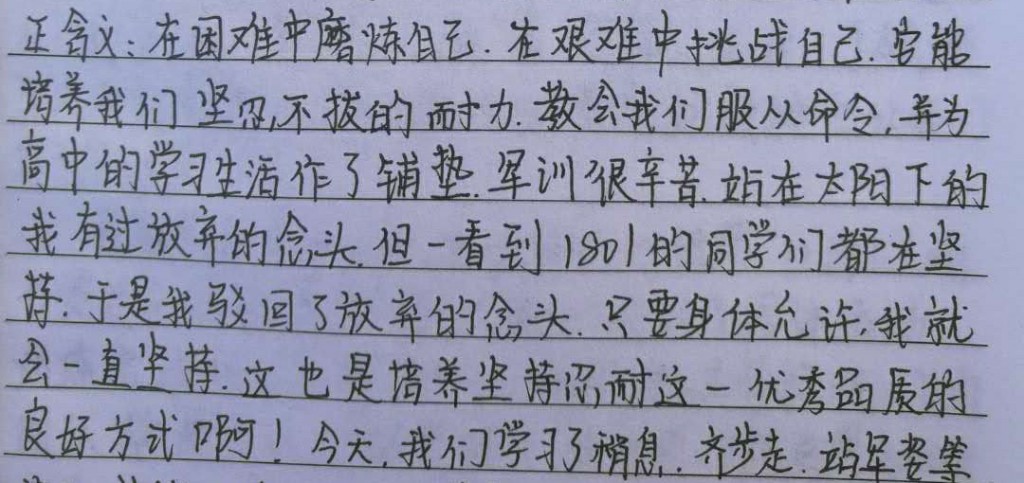 正含义:在困难中磨炼自己.在艰难中挑战自己.它能
培养我们坚忍不拔的耐力.教会我们服从命令,并为
高中的学习生活作了铺垫.军训很辛苦.站在太阳下的
我有过放弃的念头.但一看到1801的同学们都在坚
持.于是我驳回了放弃的念头.只要身体允许,我就
会一直坚持.这也是培养坚持忍耐这一优秀品质的
良好方式啊!今天,我们学习了稍息.齐步走.站军姿等